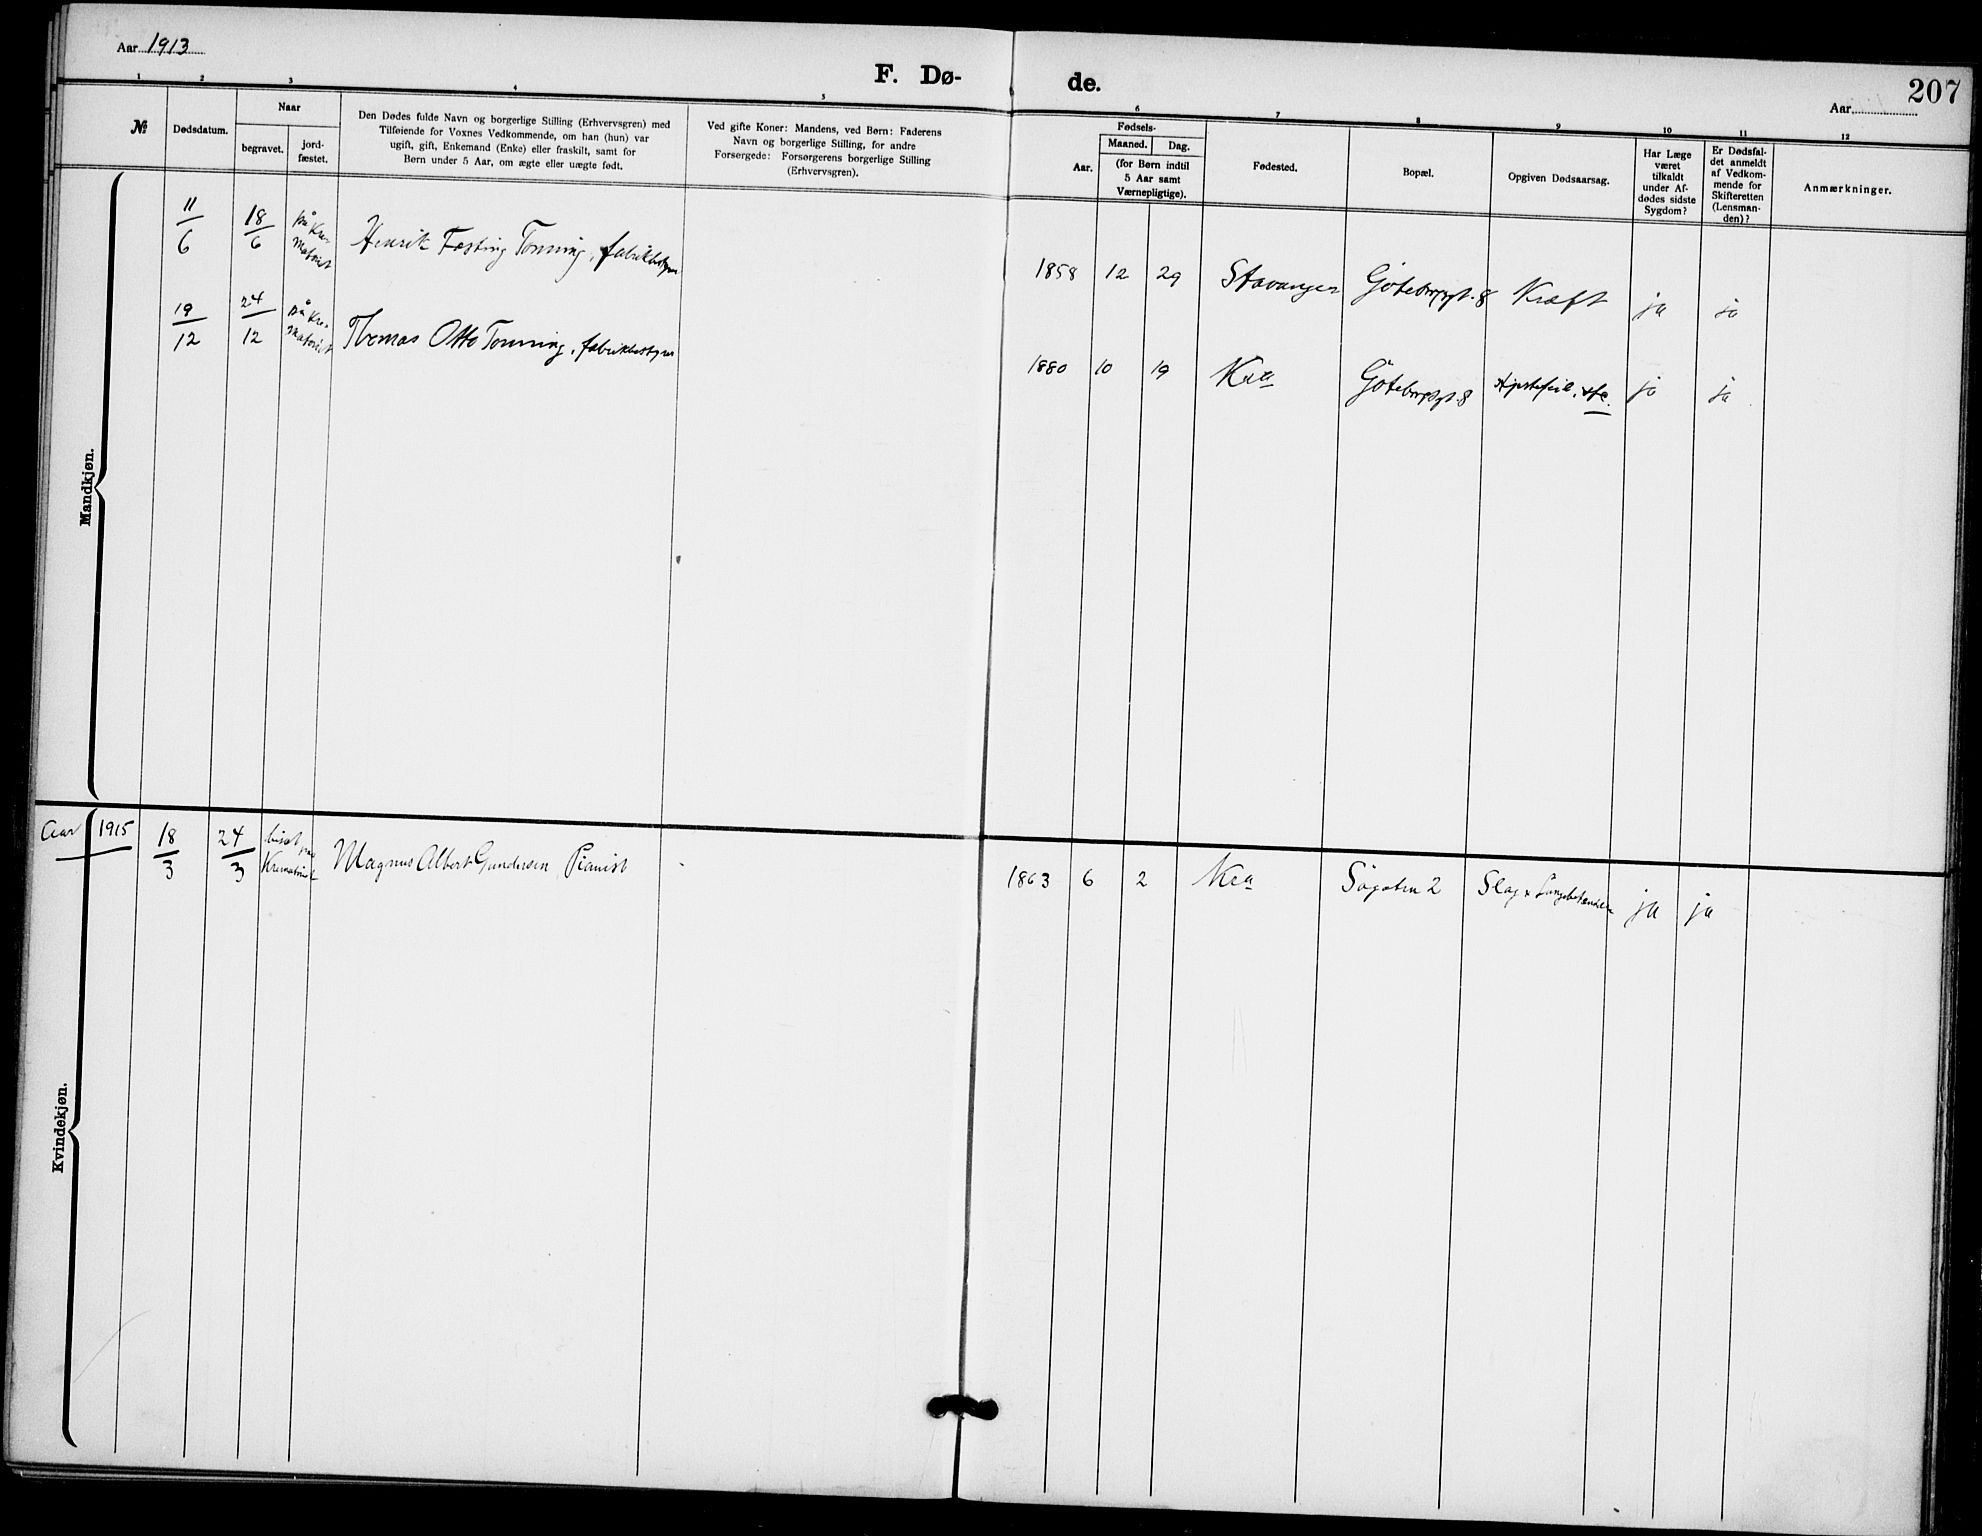 Aar 1913
F. Dø-
de.
207
Aar
1 2 3 4 5 6 7 8 9 10 11 12
№
Dødsdatum.
Naar
begravet.
jord-
fæstet.
Den Dødes fulde Navn og borgerlige Stilling (Erhvervsgren) med
Tilføiende for Voxnes Vedkommende, om han (hun) var
ugift, gift, Enkemand (Enke) eller fraskilt, samt for
Børn under 5 Aar, om ægte eller uægte født.
Ved gifte Koner: Mandens, ved Børn: Faderens
Navn og borgerlige Stilling, for andre
Forsørgede: Forsørgerens borgerlige Stilling
(Erhvervsgren).
Fødsels-
Aar.
Maaned.
Dag.
(for Børn indtil
5 Aar samt
Værnepligtige).
Fødested.
Bopæl.
Opgiven Dødsaarsag.
Har Læge
været
tilkaldt
under Af-
dødes sidste
Sygdom?
Er Dødsfal-
det anmeldt
af Vedkom-
mende for
Skifteretten
(Lensman-
den)?
Anmærkninger.
Mandkjøn.
11/6 18/6 på Kre-
matoriet
Henrik Fasting Tonning, fabrikbestyrer 1858 12 29 Stavanger Göteborggt. 8 Kræft ja ja
19/12 24/12 på Kre-
matoriet
Thomas Otto Tonning, fabrikbestyrer 1880 10 19 Kra Göteborggt. 8 Hjertefeil ja ja
Kvindekjøn.
Aar 1915 18/3 24/3 biset paa
Krematoriet
Magnus Albert Gundersen Pianist 1863 6 2 Kra Søgaten 2 Slag & Lungebetændelse ja ja